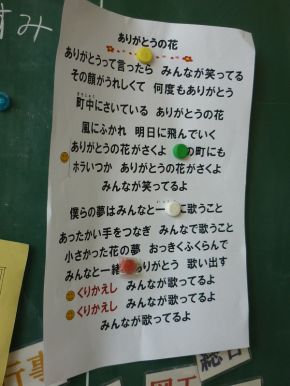 すみ
ありがとうの花
ありがとうって言ったら みんなが笑ってる
その顔がうれしくて 何度もありがとう
町中にさいている ありがとうの花
風にふかれ 明日に飛んでいく
ありがとうの花がさくよ の町にも
ホラいつか ありがとうの花がさくよ
みんなが笑ってるよ
僕らの夢はみんなと一 に歌うこと
あったかい手をつなぎ みんなで歌うこと
小さかった花の夢 おっきくふくらんで
みんなと一緒 ありがとう 歌い出す
くりかえし みんなが歌ってるよ
くりかえし みんなが歌ってるよ
みんなが歌ってるよ
行事
総合